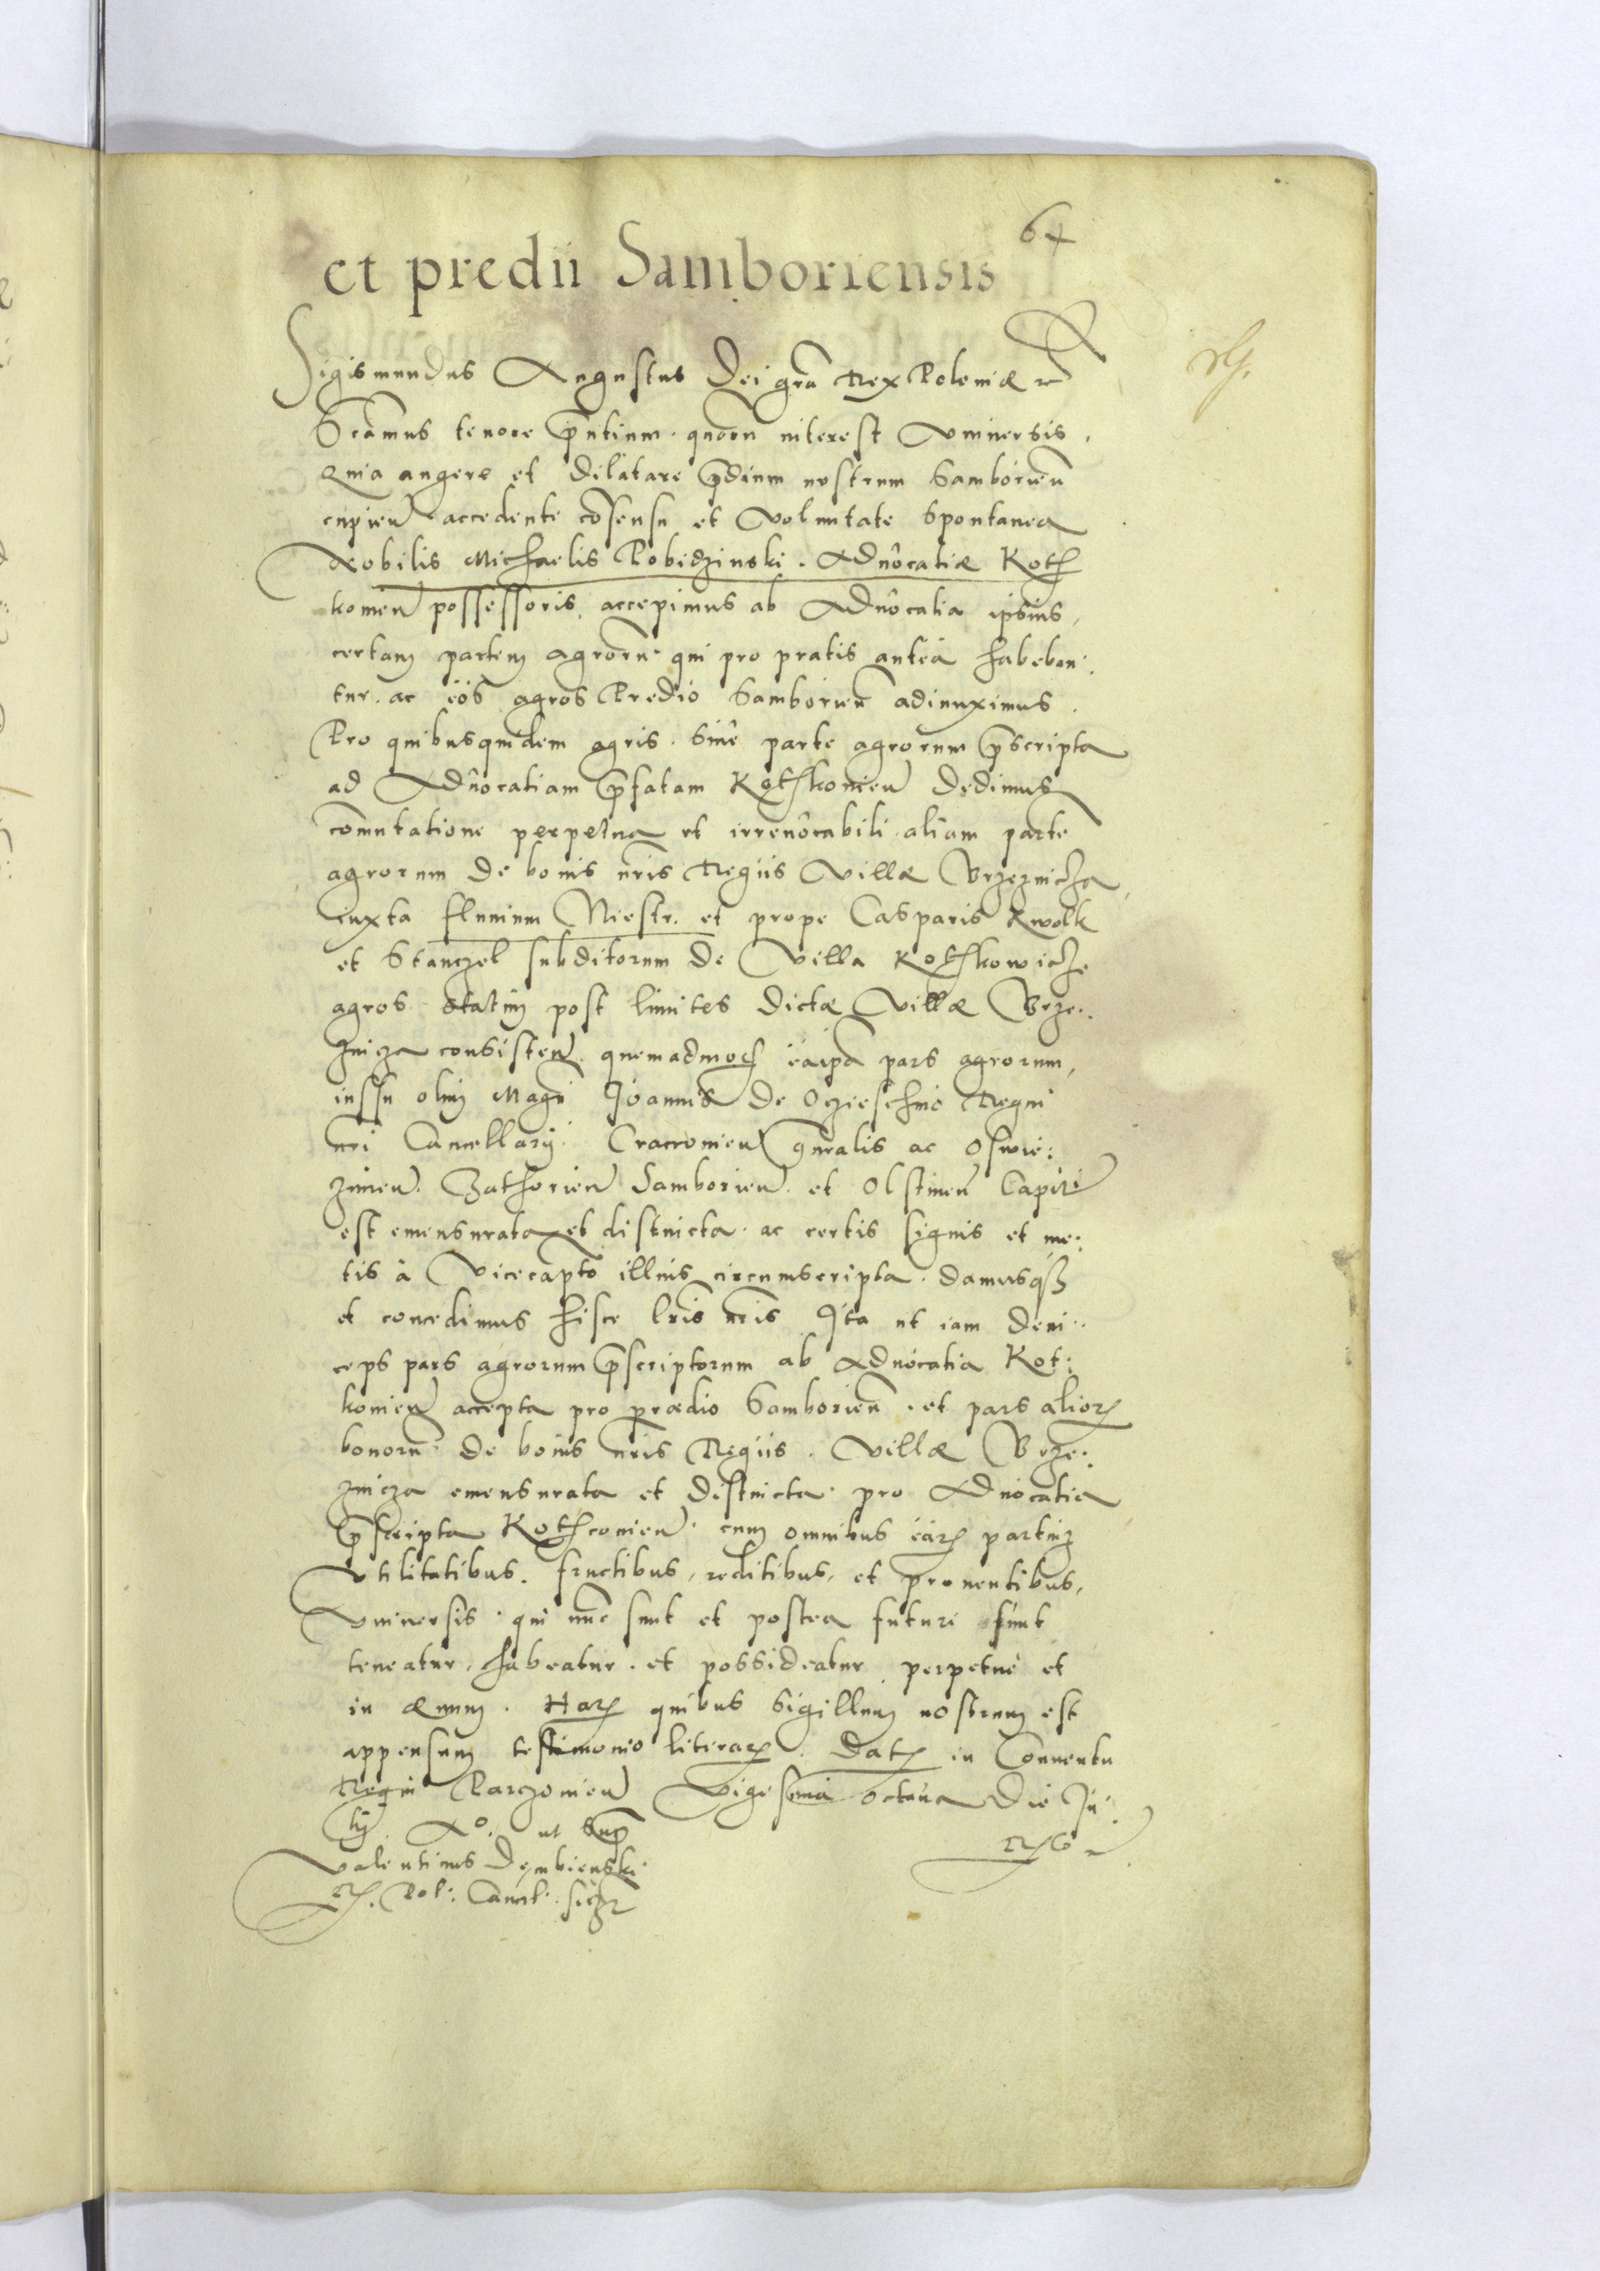 64
et predii Samboriensis
Sigismundus Augustus Dei gra Rex Poloniæ
Scamus tenore pntium quoru interest Vniuersis,
Quia augere et dilatare pdium nostrum Samborien
cupien accedente cosensu et voluntate spontanea
Nobilis Michaelis Pobidzinski. Aduocatiæ Kotz
kouien possessoris, accepimus ab Aduocatia ipsius,
certam partem agroru qui pro pratis antea habeban:
tur. ac eos agros Predio Samborien adiunximus.
Pro quibusquidem agris. siue parte agrorum pscripta
ad Aduocatiam pfatam Kotzkouien dedimus
comutatione perpetua et irreuocabili aliam parte
agrorum de bonis nris Regiis Villæ Brzeznicza
iuxta fluuium Niestr. et prope Casparis Kwolk
et Stanczel subditorum de Villa Kotzkowicze
agros statim post limites dictæ Villæ Brze:
znicza consisten. quemadmod eaipa pars agrorum,
iussu olim Magci Joannis de Oczieschino Regni
nri Cancellarij. Cracouien gnralis ac Oswie:
zimen. Zathorien Samborien. et Olstinen Capitei
est emensurata et distincta. ac certis signis et me:
tis à Vicecapto illius circumscripta. damusqz
et concedimus hisce lris nris Ita ut iam dein:
ceps pars agrorum pscriptorum ab Aduocatia Kot:
kouien accepta pro prædio Samborien. et pars alior
bonoru de bonis nris Regiis. Villæ Brze:
znicza emensurata et distincta. pro Aduocatia
pscripta Kotzcouien. cum omnibus ear partium
Vtilitatibus. fructibus, reditibus, et prouentibus,
Vniuersis. qui nunc sunt et postea futuri sunt
teneatur, habeatur. et possideatur perpetuè et
in æuum. Har quibus sigillum nostrum est
appensum testimonio literar. Dat in Conuentu
Regni Parczouien Vigesima octaua Die Ju:
lij. Ao. ut Sup
Valentinus Dembienski
R. Pol: Cancel: